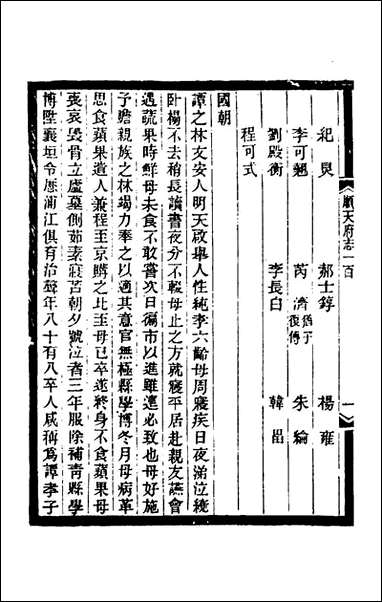 順天府志一百
一
紀炅 郝士錞 楊雍
李可翹 芮濟 朱綸
劉殿衡 李長白 韓
程可式
國朝
譚之林文安人明天啟舉人性純孝六齡母周寢疾日夜涕泣繞
卧榻不去稍長讀書夜分不輟母止之方就寢平居赴親友讌會
遇蔬果時鮮母未食不敢嘗次日徧市以進雖遠必致也母好施
予贍親族之林竭力奉之以適其意官無極縣學博冬月母病革
思食蘋果遣人兼程至京購之比至母已卒遂終身不食蘋果母
喪哀毀骨立廬墓側茹素寢苫朝夕號泣者三年服除補青縣學
博陞襄垣令厯浦江俱有治聲年八十有八卒人咸稱爲譚孝子